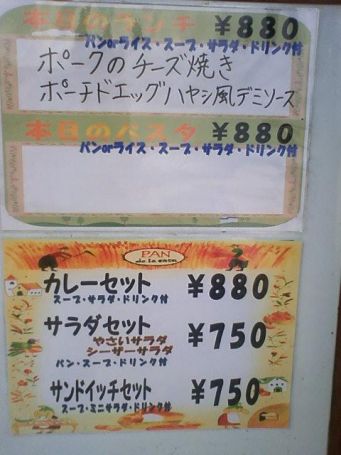 本日のランチ ¥880
パンorライス・スープ・サラダ・ドリンク付
ポークのチーズ焼き
ポーチドエッグハヤシ風デミソース
本日のパスタ ¥880
パンorライス・スープ・サラダ・ドリンク付
PAN
de la casa
カレーセット ¥880
スープ・サラダ・ドリンク付
サラダセット ¥750
やさいサラダ
シーザーサラダ
パン・スープ・ドリンク付
サンドイッチセット ¥750
スープ・ミニサラダ・ドリンク付